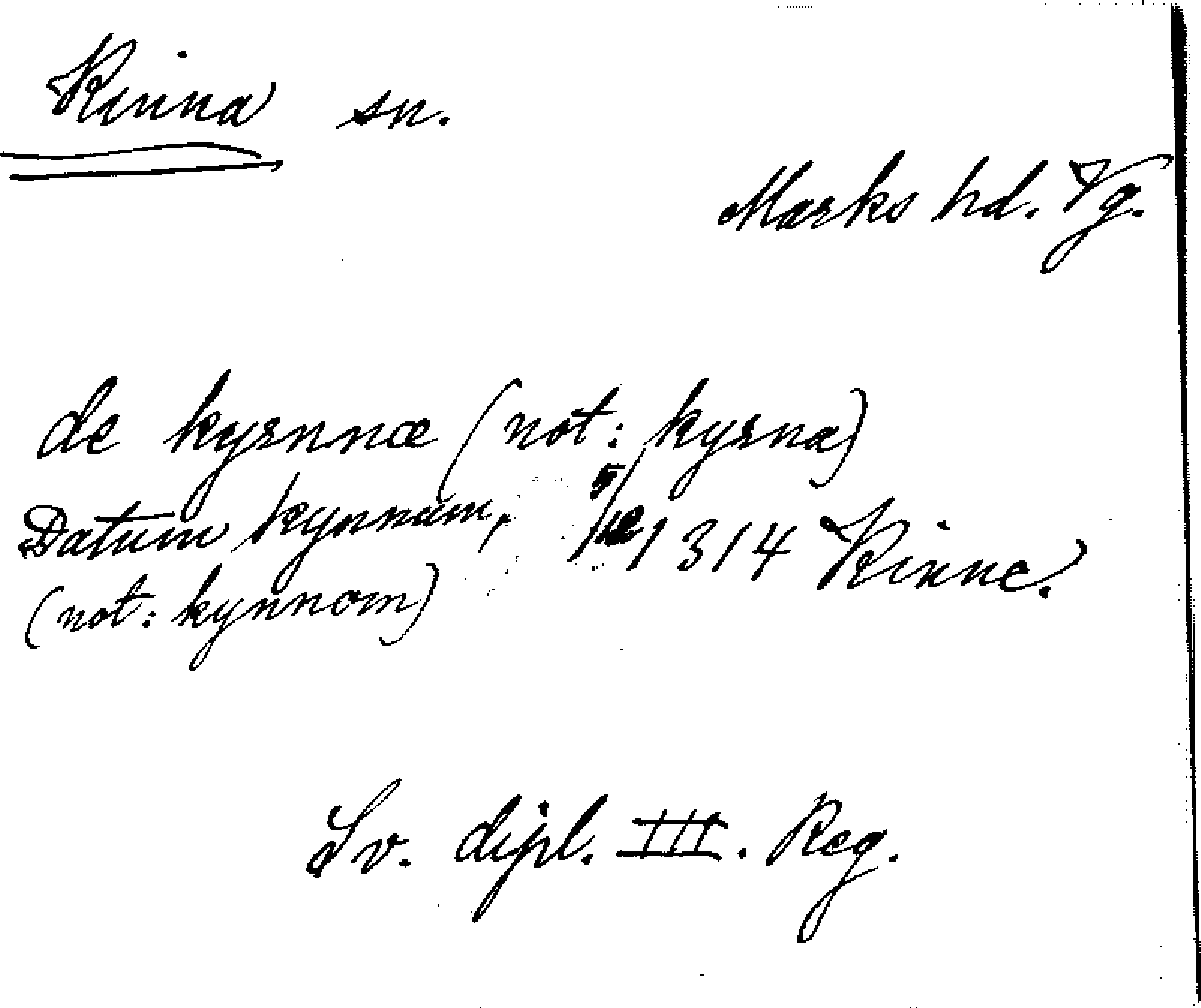 Kinna sn.
Marks hd. Vg.
de kyrnnæ (not: kyrna)
Datum kynnam, 5/12 1314 Kinne.
(not: kynnom)
Sv. dipl. III. Reg.